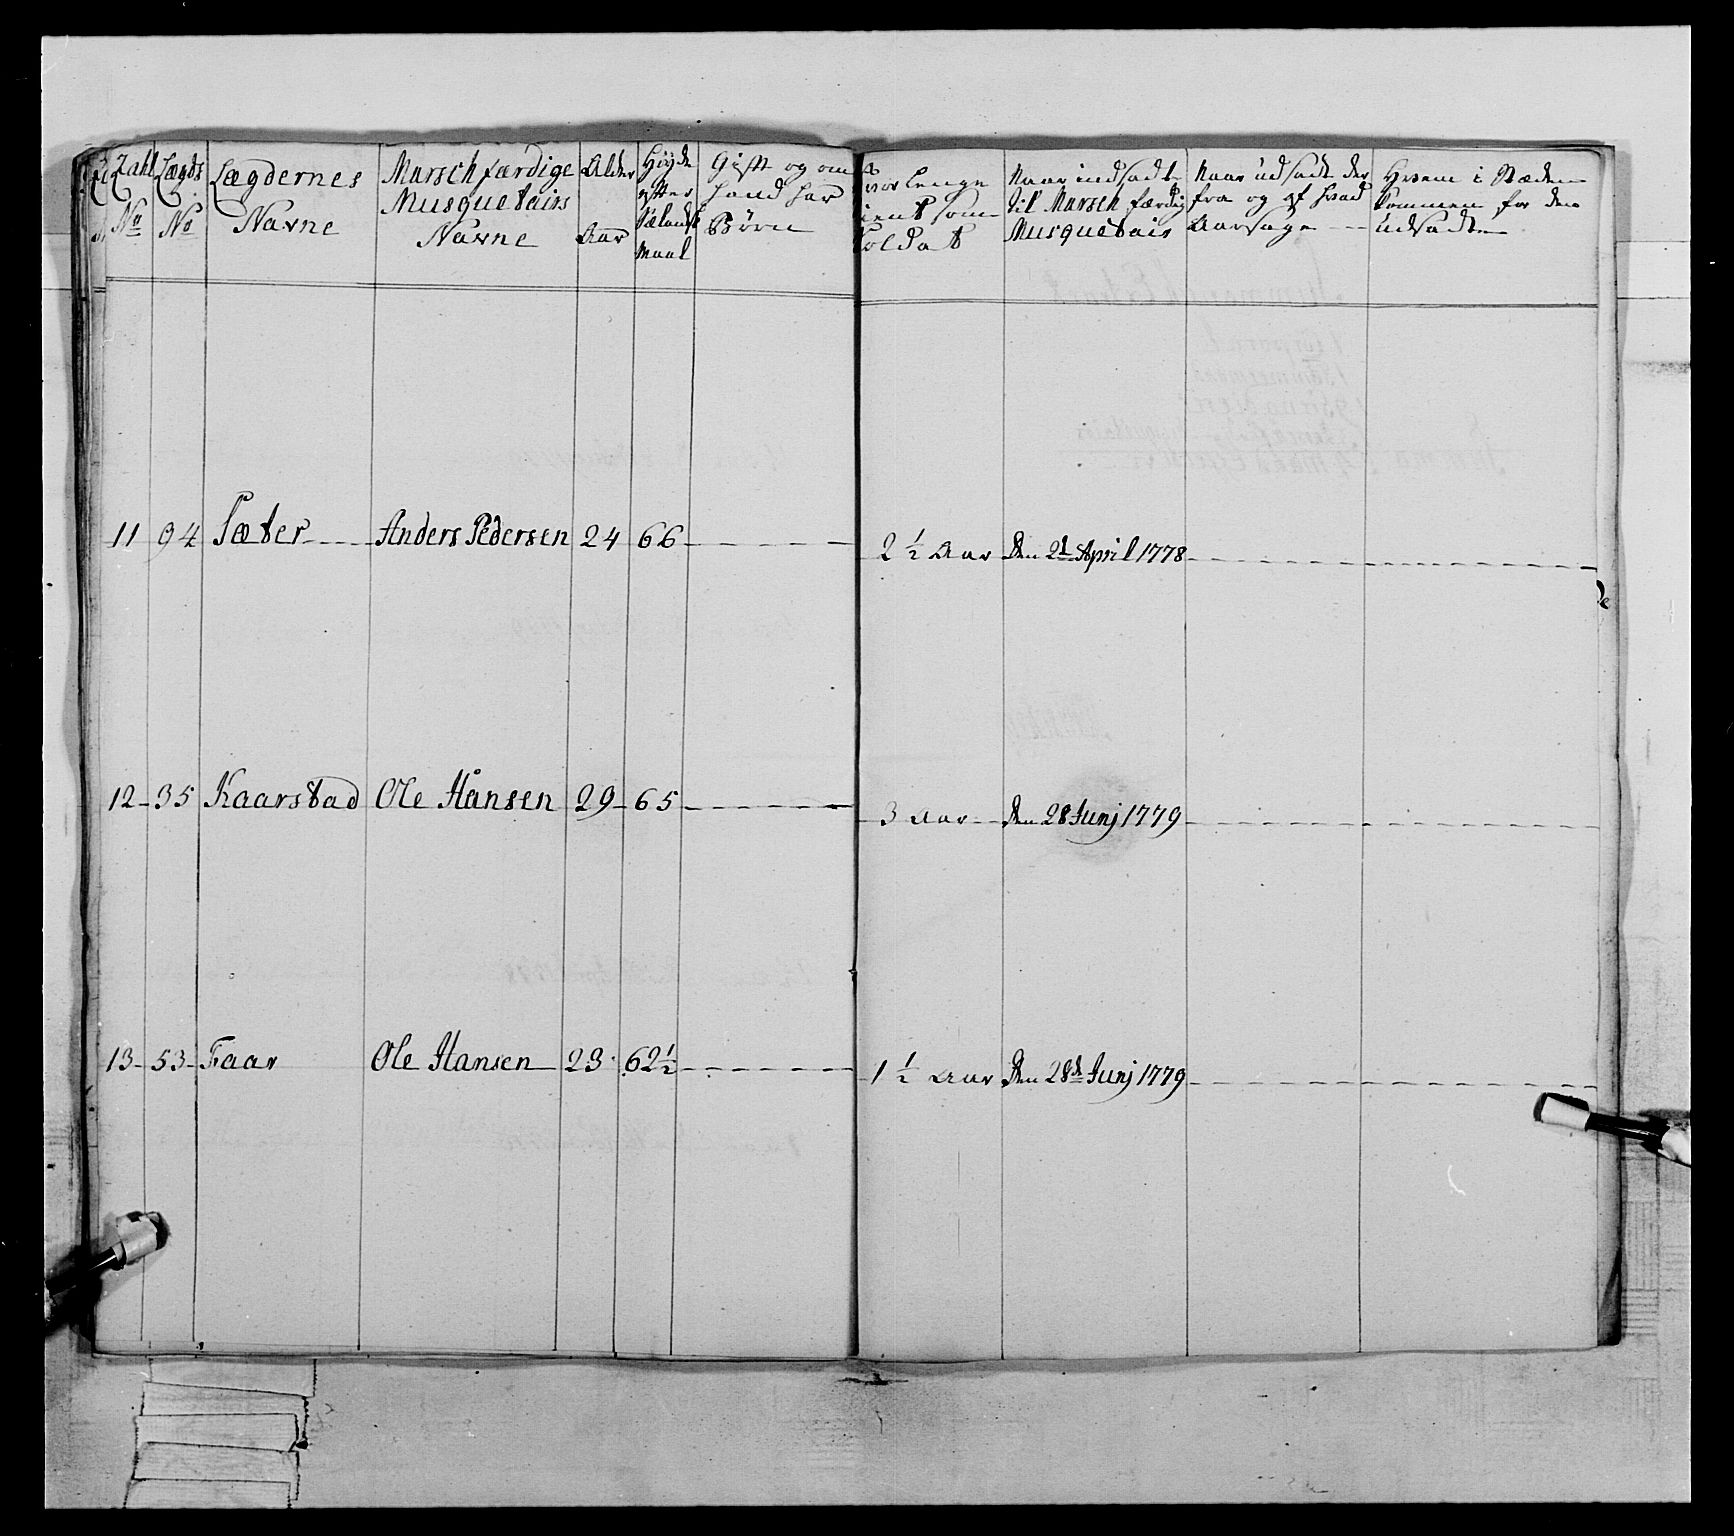 Zahl No
Lægds No
Lægdernes Navne
Marschfærdige Musquetairs Navne
Alder Aar
Høyde efter Siælandsk Maal
Gift og om hand har Børn
vor lenge tient som Soldat
Naar indsadt til Marsch færdig Musquetair
Naar udsadt der fra og af hvad Aarsage
Hvem i Stæden kommen for den udsadte
11 94 Sæter Anders Pedersen 24 66 2 1/2 Aar Den 2d April 1778
12 35 Kaarstad Ole Hansen 29 65 3 Aar Den 28 Junj 1779
13 53 Faar Ole Hansen 23 62 1/2 1 1/2 Aar Den 28d Junj 1779